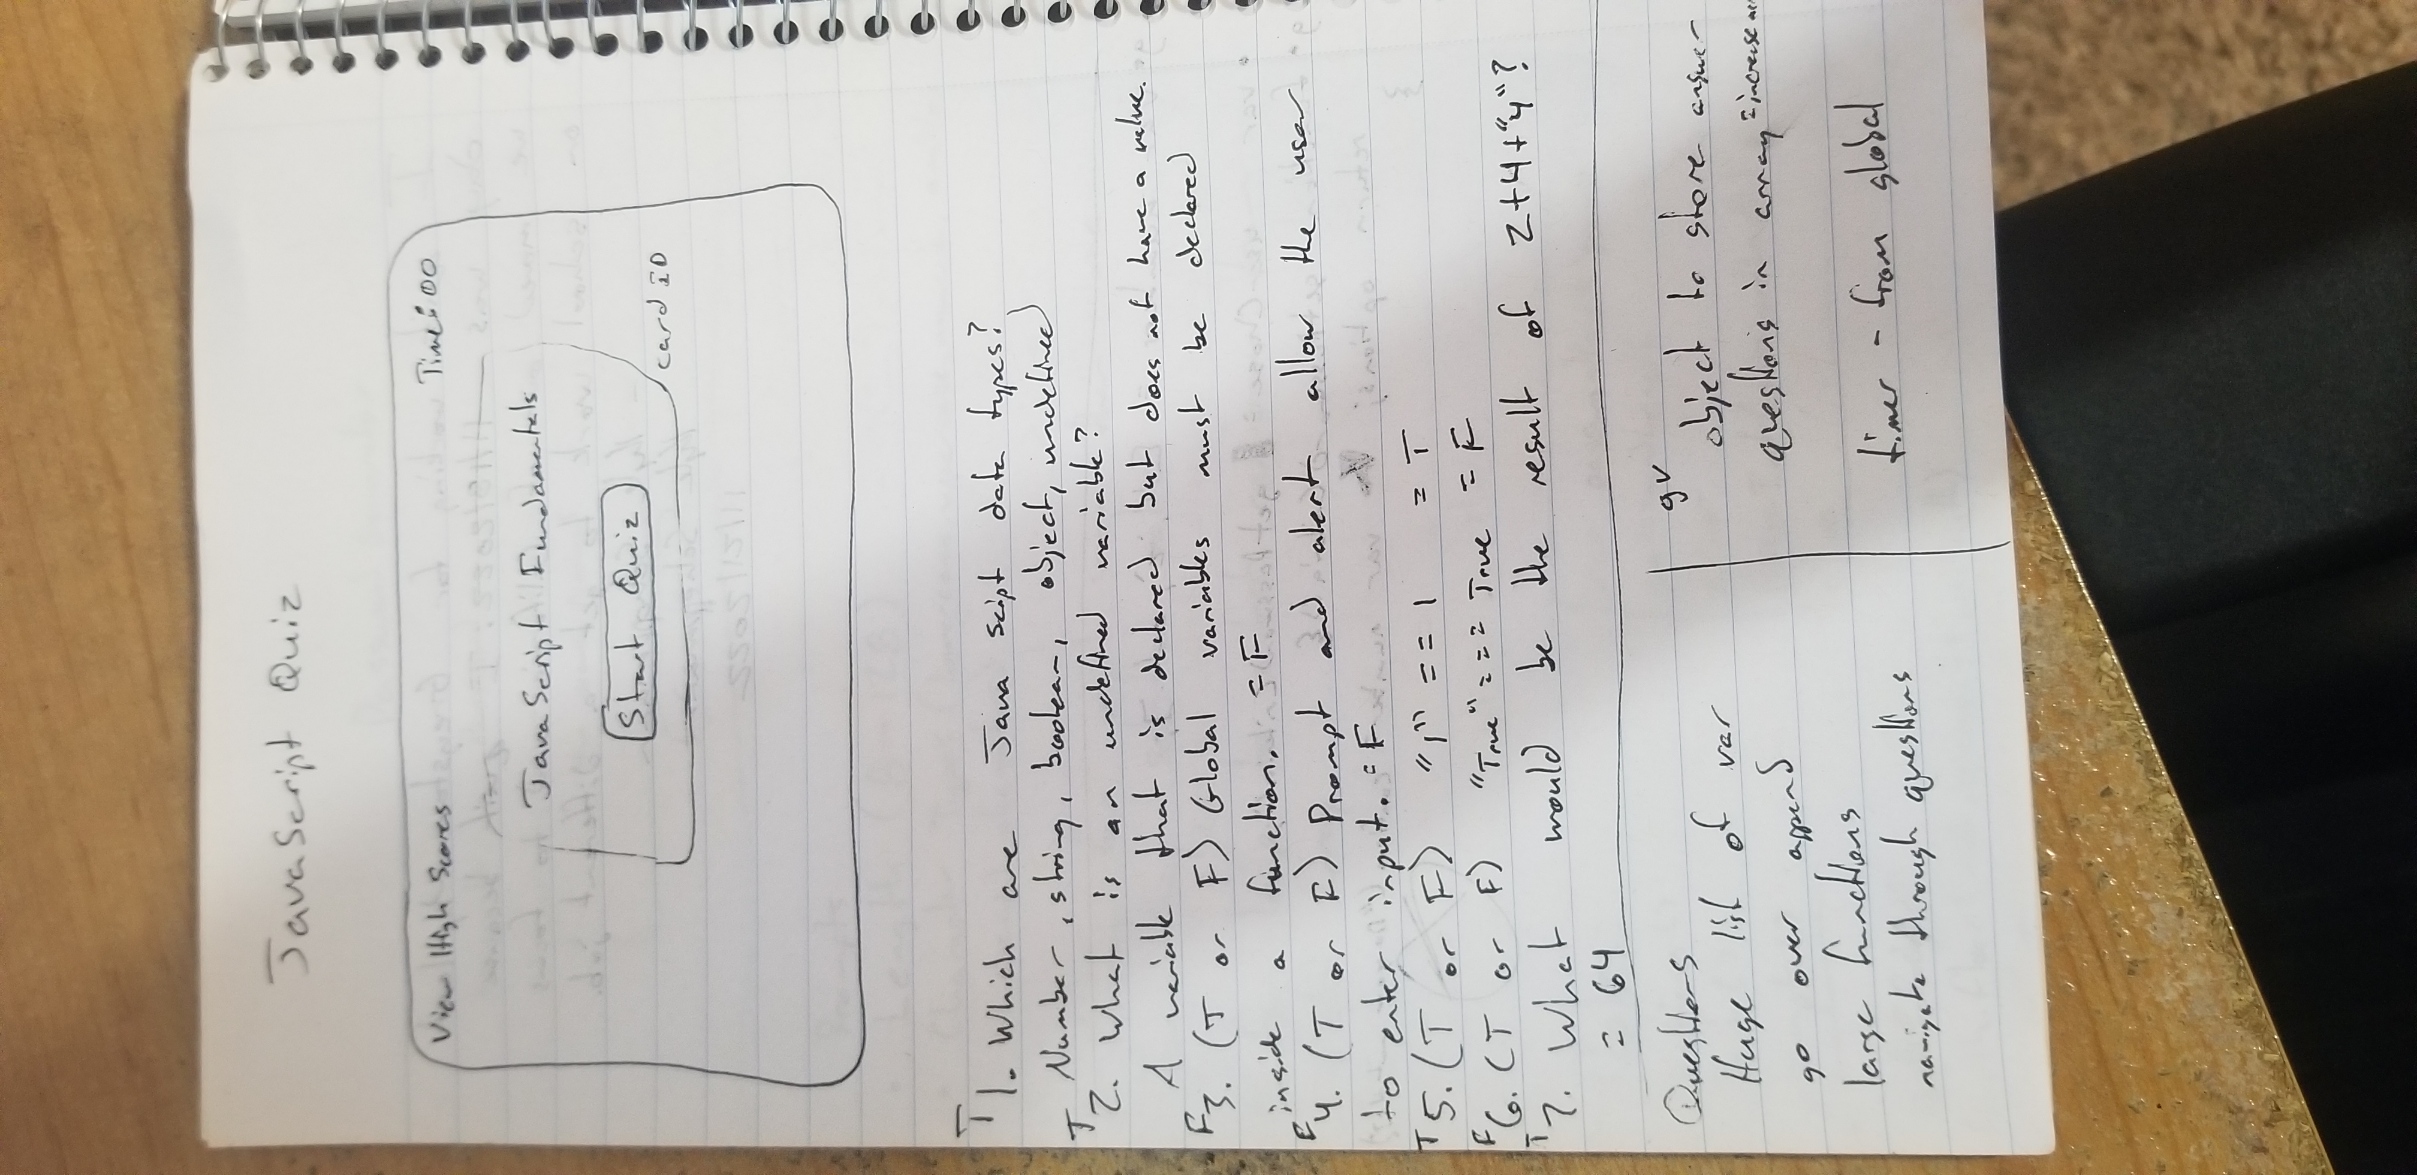 JavaScript Quiz
View High Scores Time: 00
JavaScript Fundamentals
Start Quiz
card ID
T 1. Which are Java Script data types?
Number, string, boolean, object, undefined
T 2. What is an undefined variable?
A variable that is declared but does not have a value.
F 3. (T or F) Global variables must be declared
inside a function. = F
F 4. (T or F) Prompt and alert allow the user
to enter input. = F
T 5. (T or F) "1" == 1 = T
F 6. (T or F) "True" === True = F
T 7. What would be the result of 2+4+"4"?
= 64
Questions
Huge list of var
go over append
large functions
navigate through questions
gv
object to store answer
questions in array = increase
timer - from global